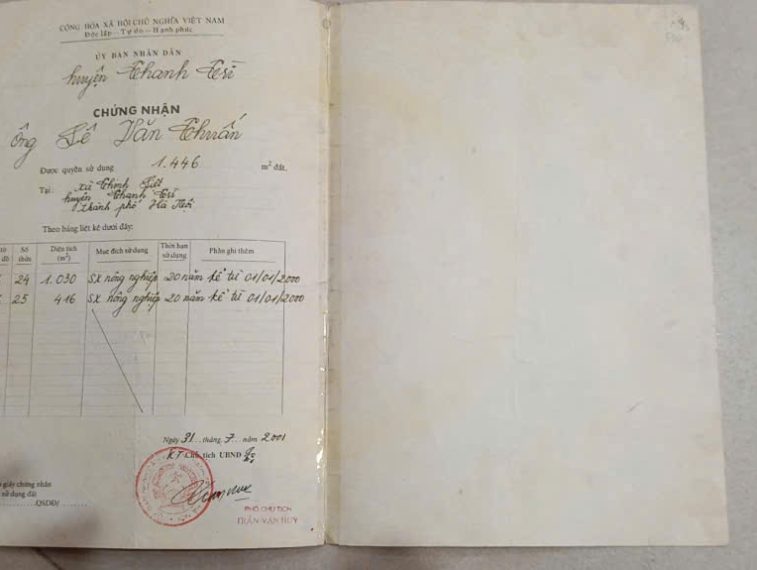 CỘNG HÒA XÃ HỘI CHỦ NGHĨA VIỆT NAM
Độc lập – Tự do – Hạnh phúc
ỦY BAN NHÂN DÂN
huyện Thanh Trì
CHỨNG NHẬN
Ông Lê Văn Thuấn
Được quyền sử dụng 1.446 m² đất.
Tại: xã Thịnh Liệt
huyện Thanh Trì
thành phố Hà Nội
Theo bảng liệt kê dưới đây:
Số thửa Diện tích (m²) Mục đích sử dụng Thời hạn sử dụng Phần ghi thêm
24 1.030 SX nông nghiệp 20 năm kể từ 01/01/2000
25 416 SX nông nghiệp 20 năm kể từ 01/01/2000
Ngày 31 tháng 7 năm 2001
KT Chủ tịch UBND
giấy chứng nhận
sử dụng đất
QSDĐ/
PHÓ CHỦ TỊCH
TRẦN VĂN HUY